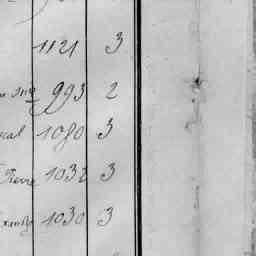 1121 3
993 2
1080 3
Pierre 1032 3
1030 3